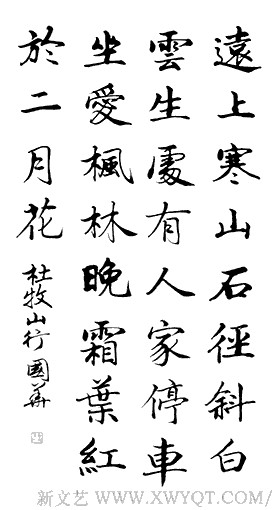 遠上寒山石徑斜白
雲生處有人家停車
坐愛楓林晚霜葉紅
於二月花
杜牧山行 國華
新文艺 WWW.XWYQT.COM